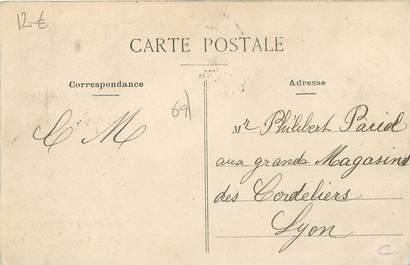 12 €
CARTE POSTALE
Correspondance
Adresse
C M
69)
Mr Philibert Pariod
aux grands Magasins
des Cordeliers
Lyon
C